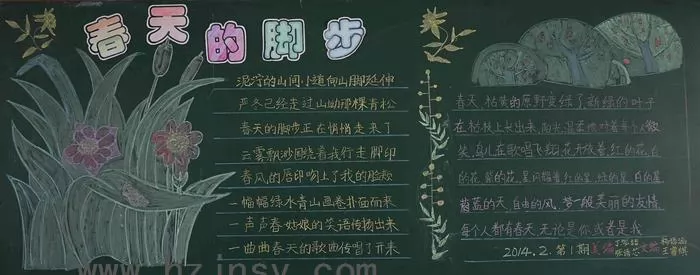 春天的脚步
泥泞的山间小道向山脚延伸
严冬已经走过山坳那棵青松
春天的脚步正在悄悄走来了
云雾飘渺围绕着我行走脚印
春风的唇印吻上了我的脸颊
一幅幅绿水青山画卷扑面而来
一声声春姑娘的笑语传扬出来
一曲曲春天的歌曲传唱了开来
春天,枯黄的原野变绿了.新绿的叶子
在枯枝上长出来,阳光温柔地对着每个人微
笑,鸟儿在歌唱飞翔.花开放着,红的花,白
的花,紫的花,星闪耀着,红的星,绿的星,白的星.
蔚蓝的天,自由的风,梦一般美丽的友情.
每个人都有春天.无论是你,或者是我
2014.2.第1期 美编 文编
www.hzjnsy.com